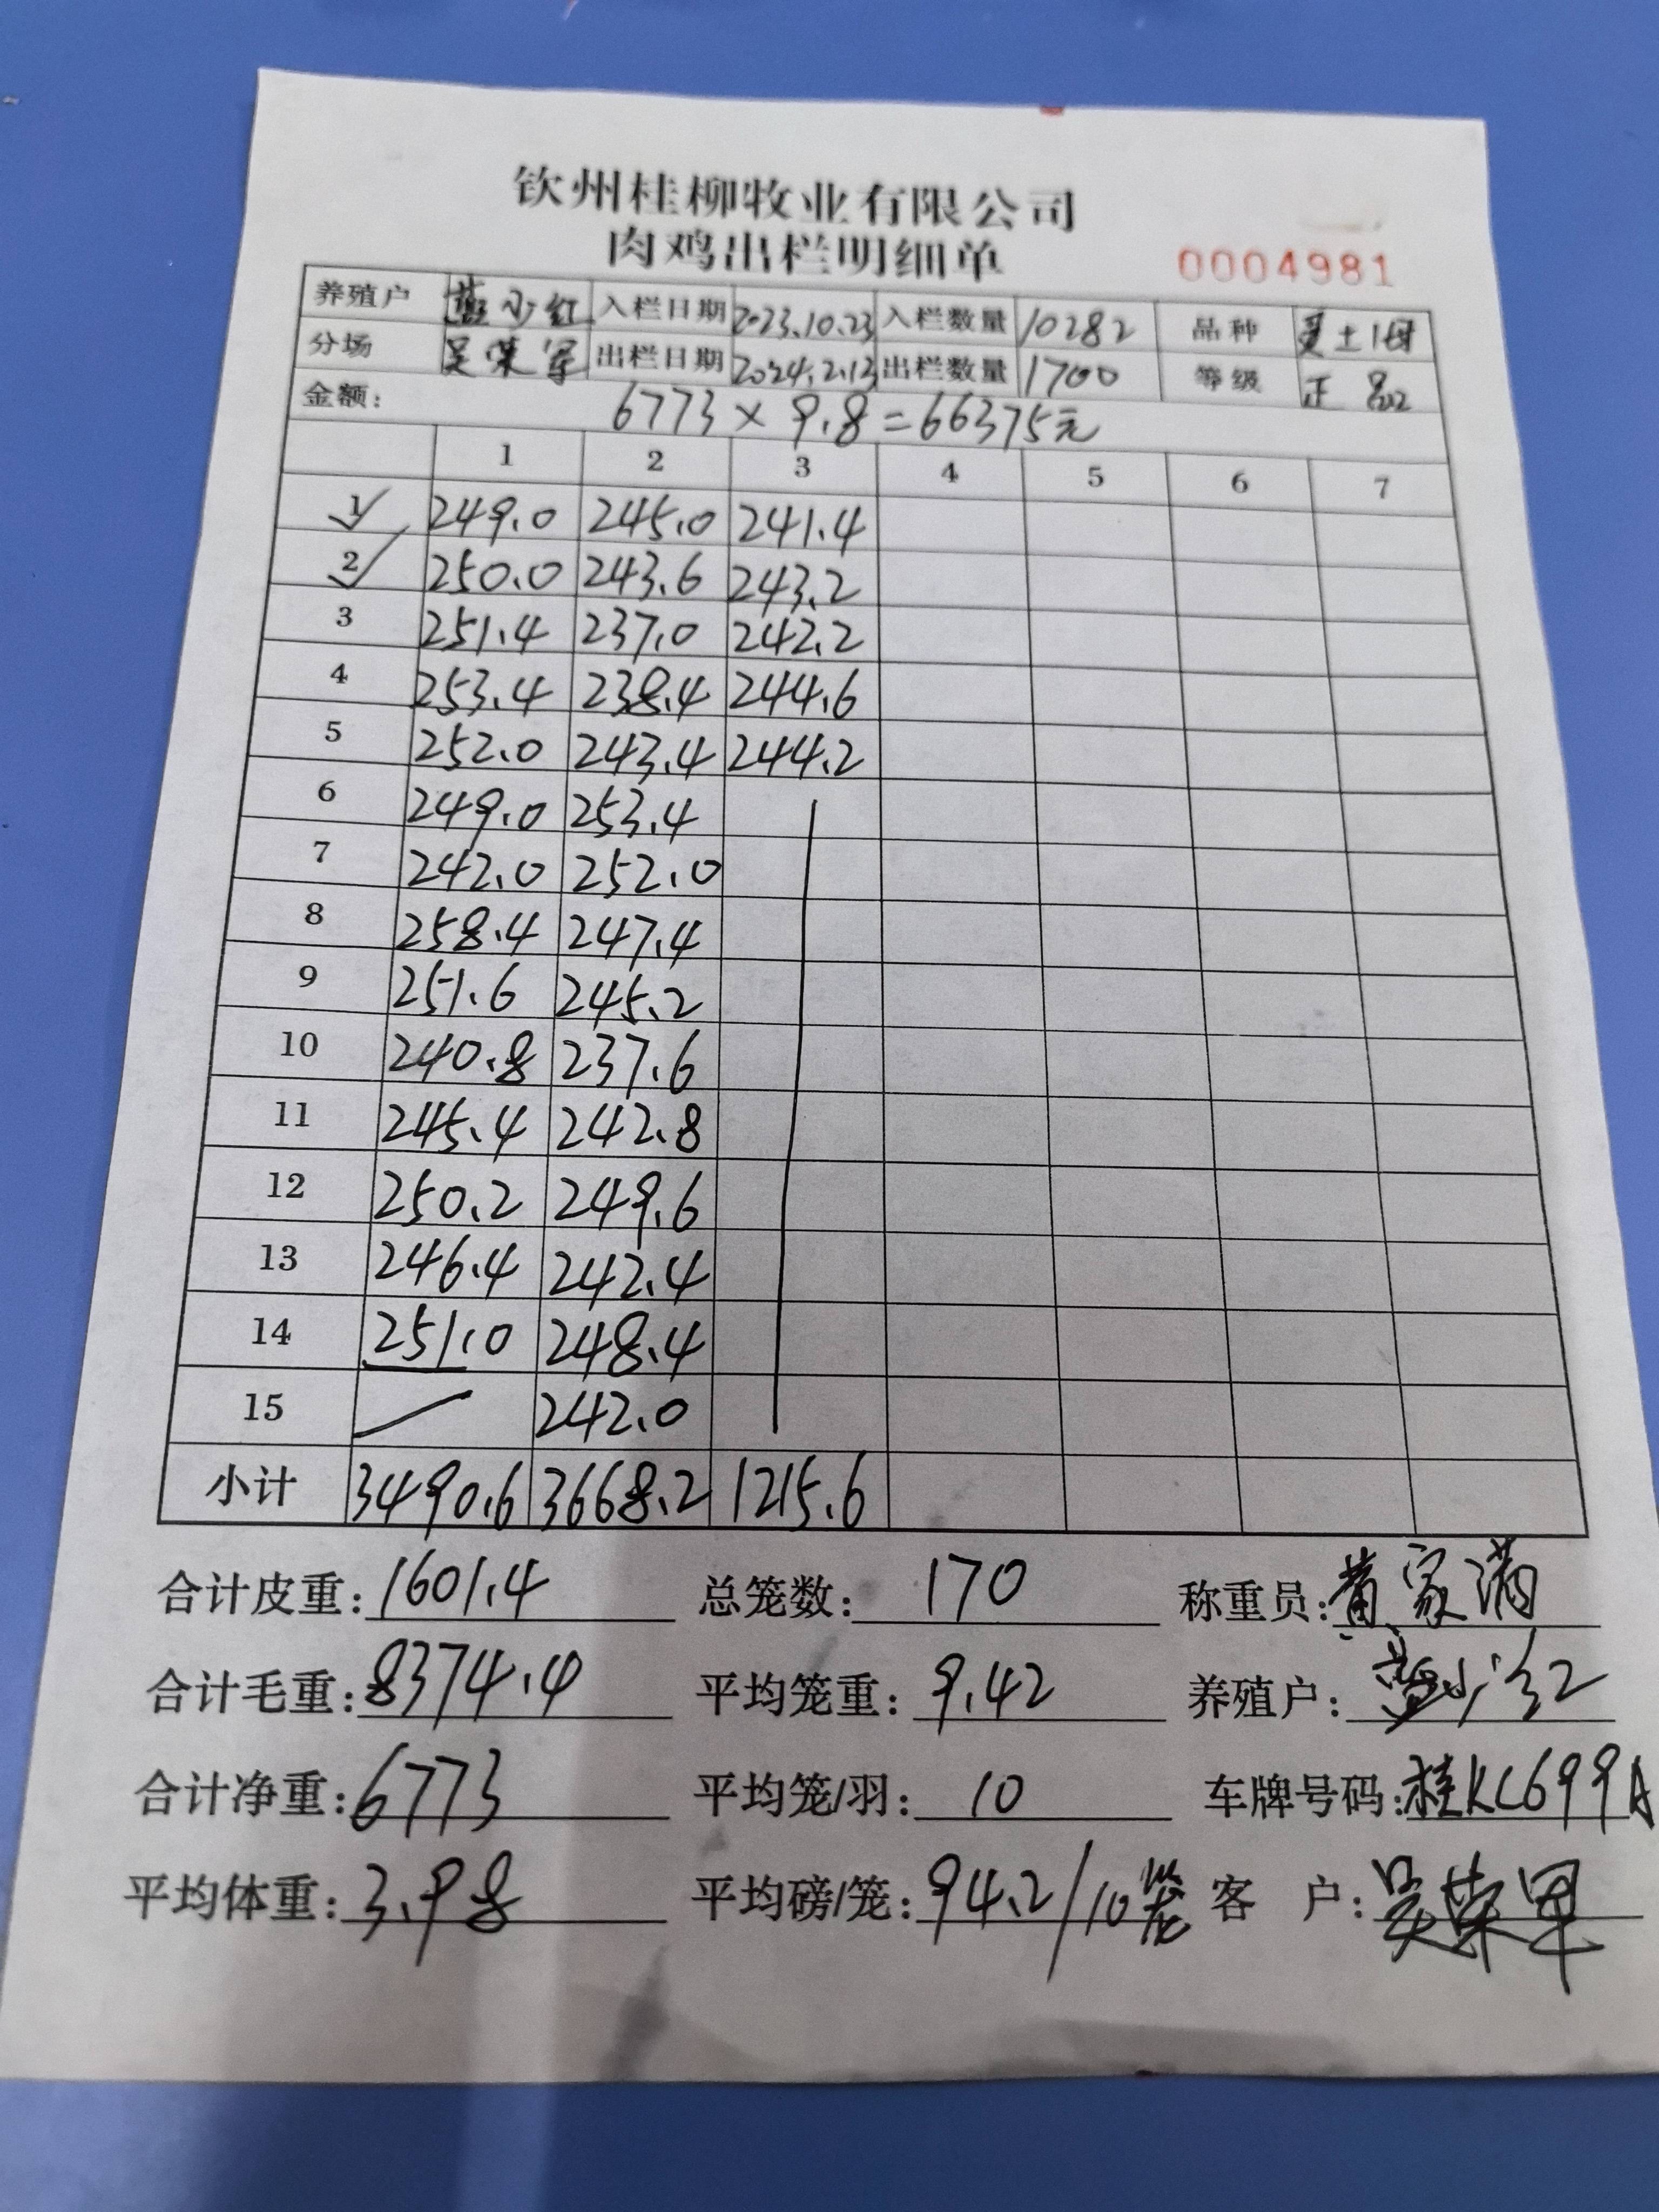 钦州桂柳牧业有限公司
肉鸡出栏明细单
0004981
养殖户 蓝小红 入栏日期 2023.10.23 入栏数量 10282 品种 土1母
分场 吴荣军 出栏日期 2024.2.13 出栏数量 1700 等级 正品
金额: 6773×9.8=66375元
1 2 3 4 5 6 7
1 249.0 245.0 241.4
2 250.0 243.6 243.2
3 251.4 237.0 242.2
4 253.4 238.4 244.6
5 252.0 243.4 244.2
6 249.0 253.4
7 242.0 252.0
8 258.4 247.4
9 251.6 245.2
10 240.8 237.6
11 245.4 242.8
12 250.2 249.6
13 246.4 242.4
14 251.0 248.4
15 242.0
小计 3490.6 3668.2 1215.6
合计皮重: 1601.4 总笼数: 170 称重员: 黄家满
合计毛重: 8374.4 平均笼重: 9.42 养殖户: 蓝小红
合计净重: 6773 平均笼/羽: 10 车牌号码: 桂KC699A
平均体重: 3.98 平均磅/笼: 94.2/10笼 客 户: 吴荣军